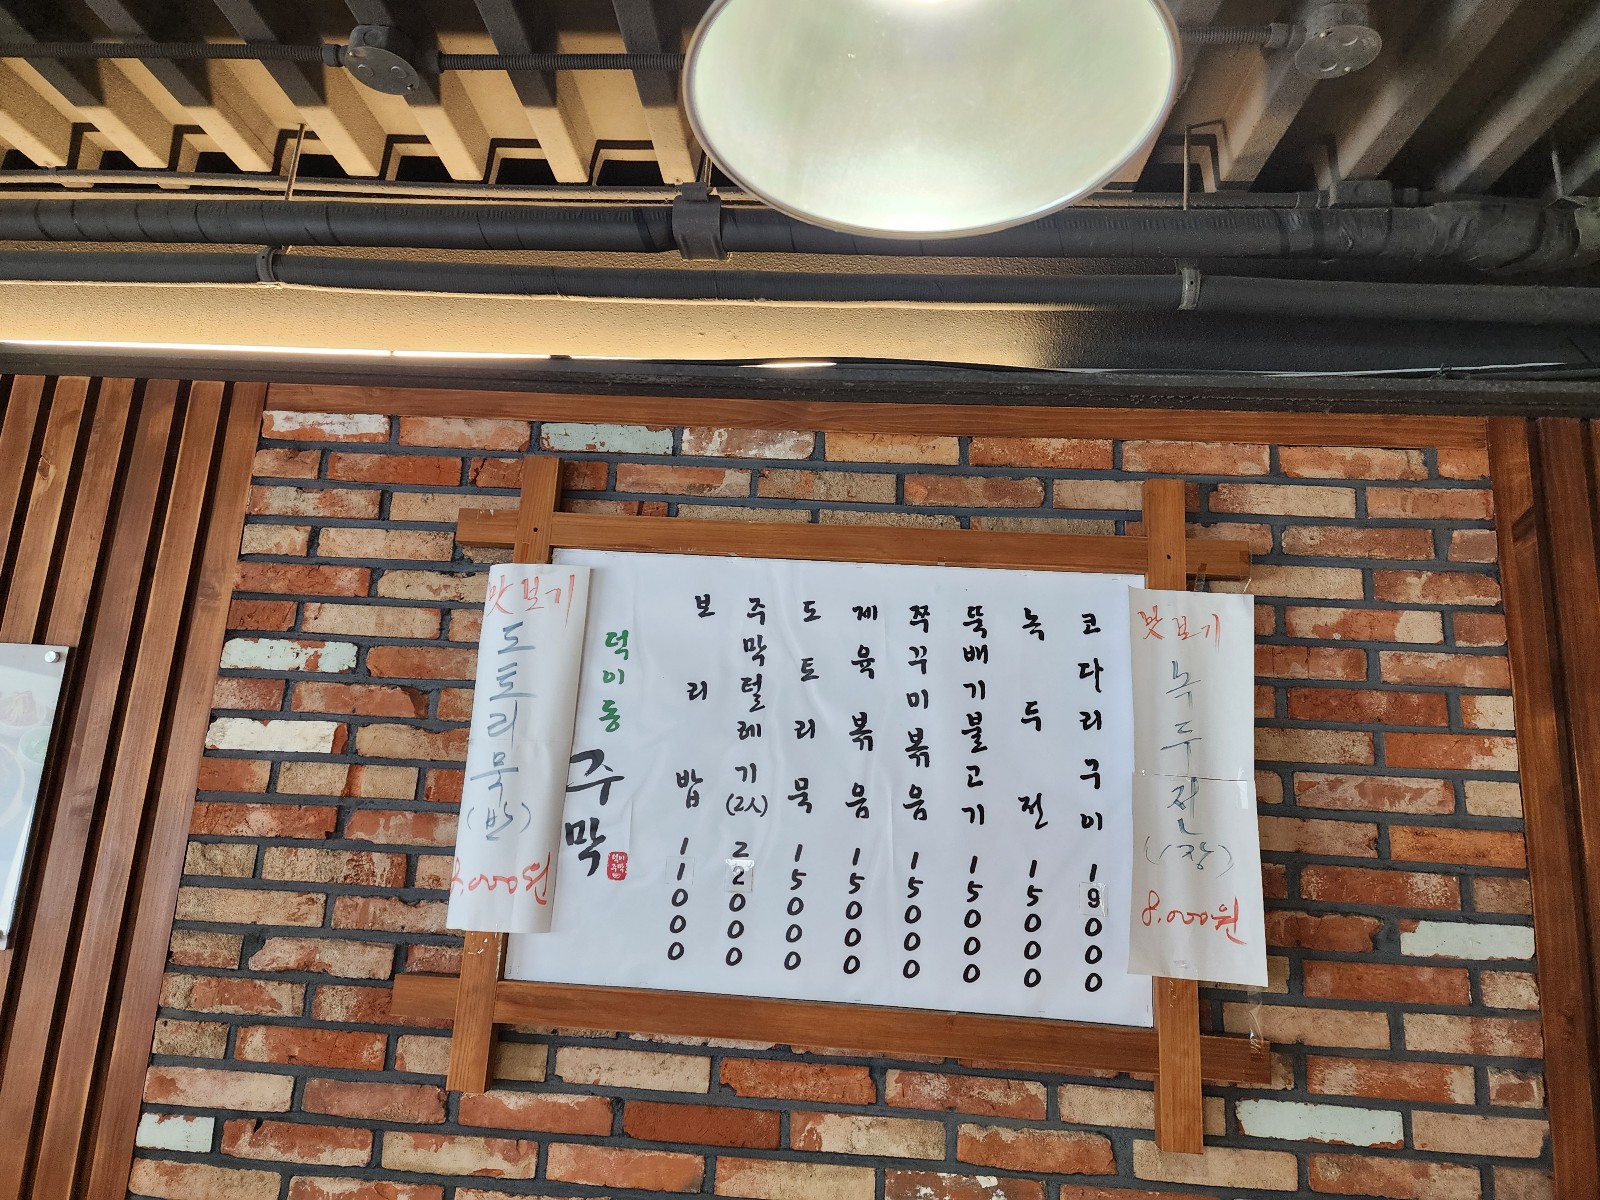 맛보기
녹두전
(1장)
8.000원
코다리구이 19000
녹두전 15000
뚝배기불고기 15000
쭈꾸미볶음 15000
제육볶음 15000
도토리묵 15000
주막털레기(2人) 22000
보리밥 11000
덕이동
주막
맛보기
도토리묵
(반)